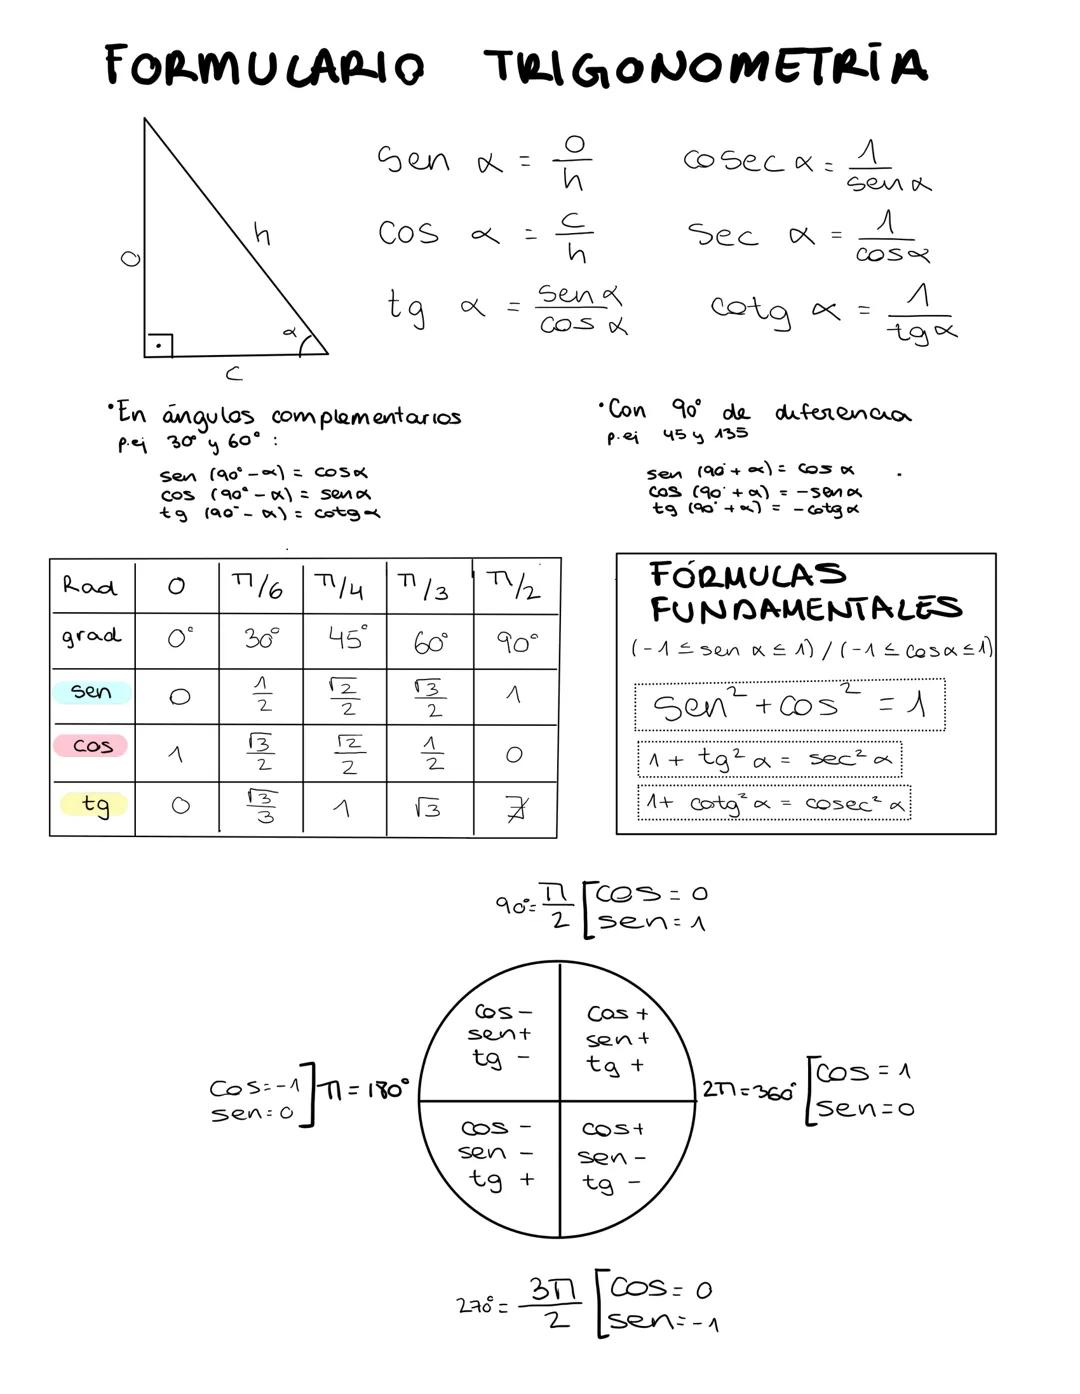 FORMULARIO TRIGONOMETRÍA
sen α = o/h
cosec α = 1/sen α
cos α = c/h
sec α = 1/cos α
tg α = sen α/cos α
cotg α = 1/tg α
o
h
α
c
• En ángulos complementarios
p.ej 30° y 60° :
sen (90° - α) = cos α
cos (90° - α) = sen α
tg (90° - α) = cotg α
• Con 90° de diferencia
p.ej 45 y 135
sen (90° + α) = cos α
cos (90° + α) = - sen α
tg (90° + α) = - cotg α
Rad 0 π/6 π/4 π/3 π/2
grad 0° 30° 45° 60° 90°
sen 0 1/2 √2/2 √3/2 1
cos 1 √3/2 √2/2 1/2 0
tg 0 √3/3 1 √3 ∄
FÓRMULAS
FUNDAMENTALES
(-1 ≤ sen α ≤ 1) / (-1 ≤ cos α ≤ 1)
sen² + cos² = 1
1 + tg² α = sec² α
1 + cotg² α = cosec² α
90° = π/2 [cos = 0
sen = 1
cos -
sen +
tg -
cos +
sen +
tg +
cos = -1
sen = 0
] π = 180°
2π = 360°
[cos = 1
sen = 0
cos -
sen -
tg +
cos +
sen -
tg -
270° = 3π/2 [cos = 0
sen = -1